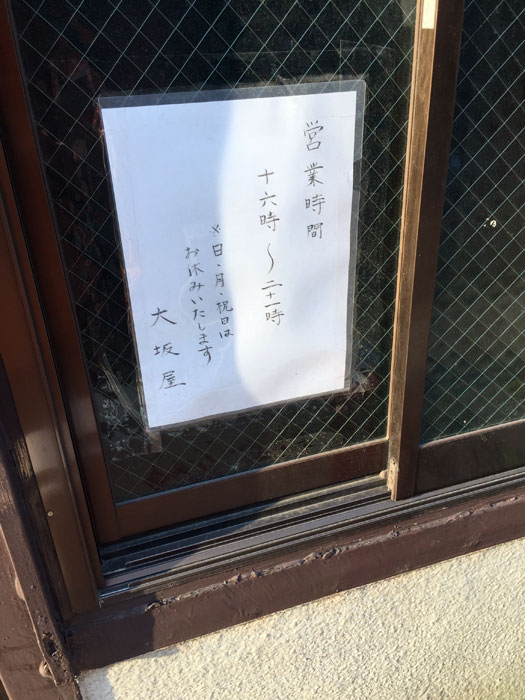 営業時間
十六時〜二十一時
※日、月、祝日は
お休みいたします
大坂屋